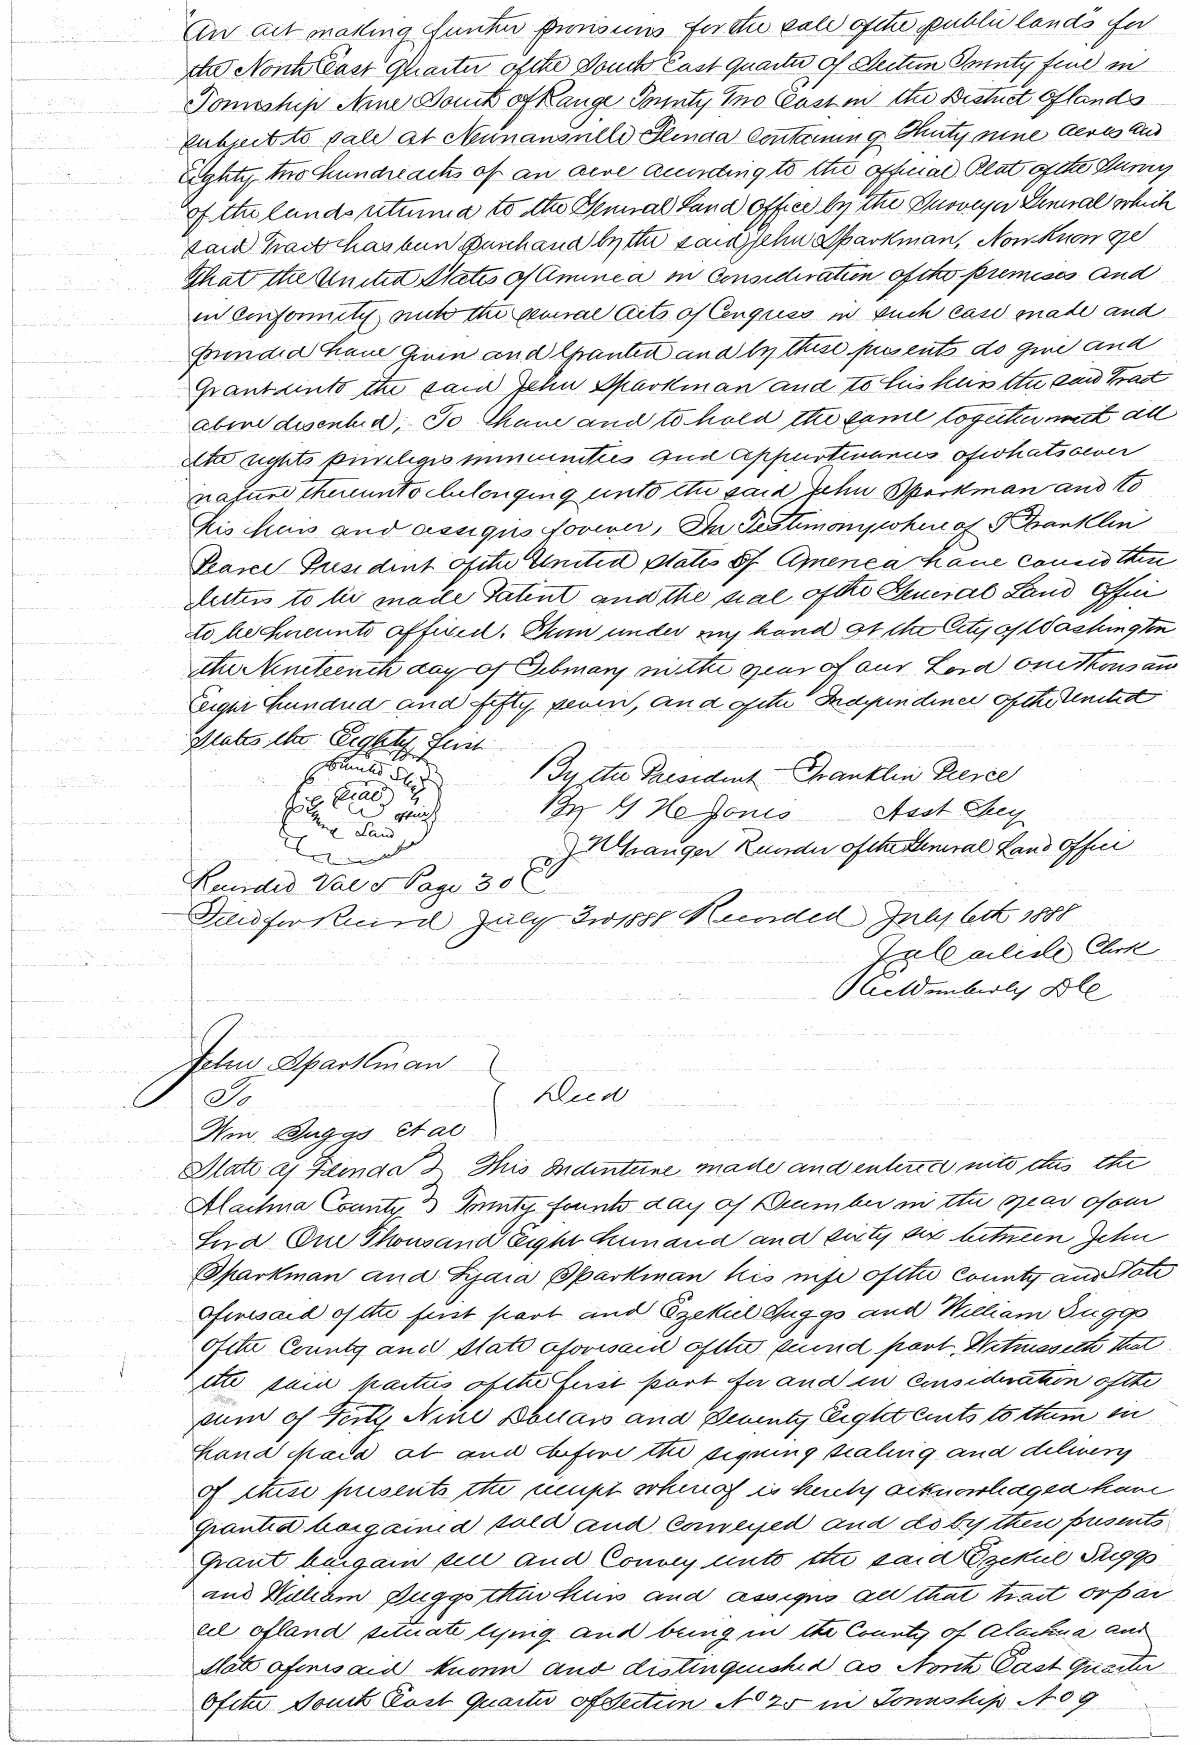 An act making further provisions for the sale of the public lands" for
the North East Quarter of the South East Quarter of Section Twenty five in
Township Nine South of Range Twenty Two East in the District of lands
subject to sale at Newnansville Florida containing Thirty nine acres and
Eighty two hundredths of an acre according to the official Plat of the Survey
of the lands returned to the General Land Office by the Surveyor General which
said Tract has been purchased by the said John Sparkman, Now know ye
That the United States of America in consideration of the premises and
in conformity with the several Acts of Congress in such case made and
provided have Given and Granted and by these presents do give and
Grant unto the said John Sparkman and to his heirs the said Tract
above described; To have and to hold the same together with all
the rights privileges immunities and appurtenances of whatsoever
nature thereunto belonging unto the said John Sparkman and to
his heirs and assigns forever, In Testimony whereof I Franklin
Pearce President of the United States of America have caused these
letters to be made Patent and the seal of the General Land Office
to be hereunto affixed. Given under my hand at the City of Washington
the Nineteenth day of February in the year of our Lord one Thousand
Eight hundred and fifty seven, and of the Independence of the United
States the Eighty first
United States
Seal
Office
Land
By the President Franklin Pierce
By G H Jones Asst Secy
J N Granger Recorder of the General Land Office
Recorded Vol 5 Page 308
Filed for Record July 3rd 1888 Recorded July 6th 1888
J A Carlisle Clerk
Wimberly D C
John Sparkman
To
Deed
Wm Suggs et al
State of Florida } This Indenture made and entered into this the
Alachua County } Twenty fourth day of December in the year of our
Lord One Thousand Eight hundred and sixty six between John
Sparkman and Lydia Sparkman his wife of the County and State
aforesaid of the first part and Ezekiel Suggs and William Suggs
of the County and State aforesaid of the second part, Witnesseth that
the said parties of the first part for and in consideration of the
sum of Forty Nine Dollars and Seventy Eight cents to them in
hand paid at and before the signing sealing and delivery
of these presents the receipt whereof is hereby acknowledged have
granted bargained sold and conveyed and do by these presents
Grant bargain sell and Convey unto the said Ezekiel Suggs
and William Suggs their heirs and assigns all that tract or par
cel of land situate lying and being in the County of Alachua and
State aforesaid known and distinguished as North East Quarter
of the South East Quarter of Section No 25 in Township No 9